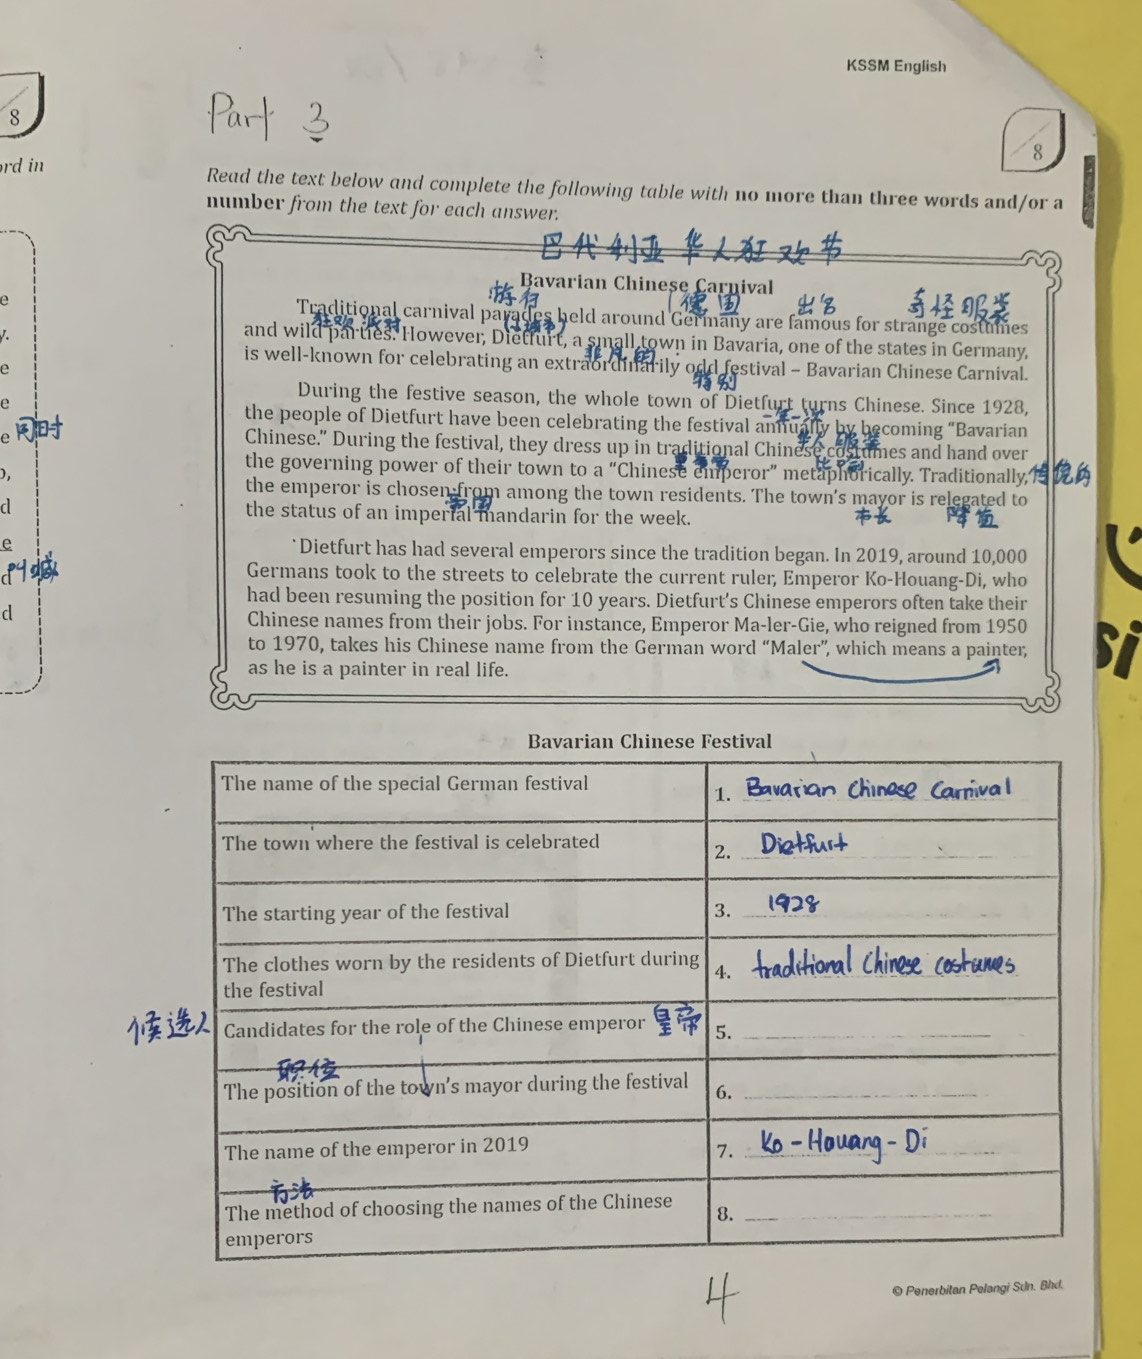 KSSM English
8
Part 3
8
ord in
Read the text below and complete the following table with no more than three words and/or a
number from the text for each answer.
巴代利亚华人狂欢节
Bavarian Chinese Carnival
游行 德国 出名 奇怪服装
Traditional carnival parades held around Germany are famous for strange costumes
狂欢派对 (小城市)
and wild parties. However, Dietfurt, a small town in Bavaria, one of the states in Germany,
非凡的
is well-known for celebrating an extraordinarily odd festival – Bavarian Chinese Carnival.
特别
During the festive season, the whole town of Dietfurt turns Chinese. Since 1928,
一年一次
the people of Dietfurt have been celebrating the festival annually by becoming "Bavarian
华人服装
Chinese." During the festival, they dress up in traditional Chinese costumes and hand over
比喻
the governing power of their town to a "Chinese emperor" metaphorically. Traditionally, 传统的
the emperor is chosen from among the town residents. The town's mayor is relegated to
帝国
the status of an imperial mandarin for the week.
市长 降值
Dietfurt has had several emperors since the tradition began. In 2019, around 10,000
Germans took to the streets to celebrate the current ruler, Emperor Ko-Houang-Di, who
had been resuming the position for 10 years. Dietfurt's Chinese emperors often take their
Chinese names from their jobs. For instance, Emperor Ma-ler-Gie, who reigned from 1950
to 1970, takes his Chinese name from the German word "Maler", which means a painter,
as he is a painter in real life.
e
y.
e
e
e 同时
o,
d
e
d 叫喊
d
Bavarian Chinese Festival
The name of the special German festival
1. Bavarian Chinese Carnival
The town where the festival is celebrated
2. Dietfurt
The starting year of the festival
3. 1928
The clothes worn by the residents of Dietfurt during
the festival
4. traditional Chinese costumes
候选人 Candidates for the role of the Chinese emperor 皇帝
5.
职位
The position of the town's mayor during the festival
6.
The name of the emperor in 2019
7. Ko-Houang-Di
方法
The method of choosing the names of the Chinese
emperors
8.
4
© Penerbitan Pelangi Sdn. Bhd.
si